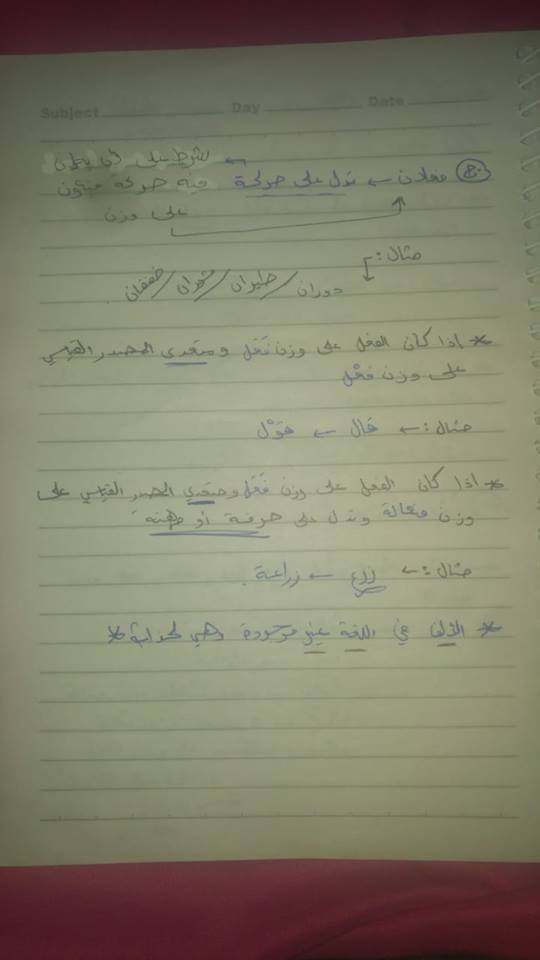 Subject Day Date
فعلان ← تدل على حركة
على وزن
مثال:
دوران / طيران / ثوران / خفقان
* اذا كان الفعل على وزن فَعَل ومتعدي المصدر القياسي
على وزن فَعْل
مثال: ← قال ← قَوْل
* اذا كان الفعل على وزن فَعَل ومتعدي المصدر القياسي على
وزن فعالة وتدل على حرفة أو مهنة
مثال: ← زرع ← زراعة.
* الألف في اللغة غير موجودة وهي *